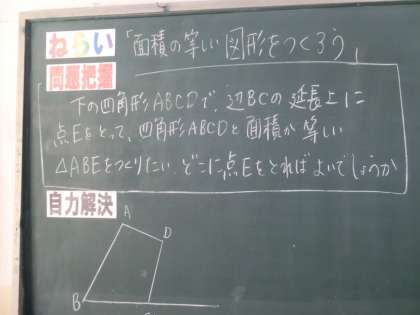 ねらい 「面積の等しい図形をつくろう」
問題把握
下の四角形ABCDで、辺BCの延長上に
点Eをとって、四角形ABCDと面積が等しい
△ABEをつくりたい。どこに点Eをとればよいでしょうか
自力解決
A
D
B